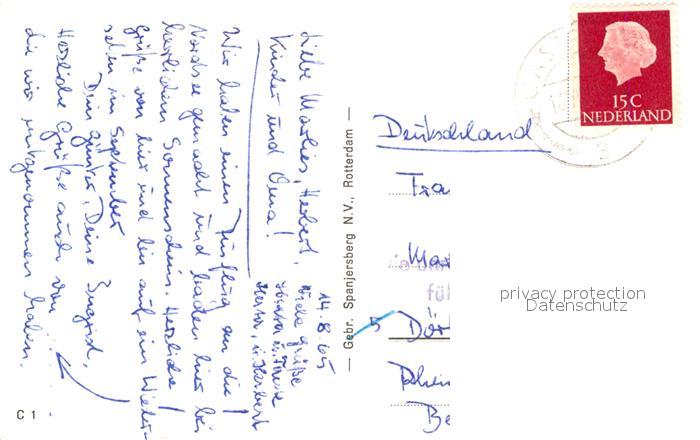 14.8.65
Liebe Marlies, Herbert,
Kinder und Oma!
Wir haben einen Ausflug an die
Nordsee gemacht und baden hier bei
herrlichem Sonnenschein. Herzliche
Grüße von hier und bis auf ein Wieder-
sehen im September
Deine Ingrid.
Herzliche Grüße auch von
die wir mitgenommen haben.
Viele Grüße
C 1
— Gebr. Spanjersberg N.V., Rotterdam —
15 C
NEDERLAND
Deutschland
Fra
Mar
5 Dör
Rhein
Be
privacy protection
Datenschutz